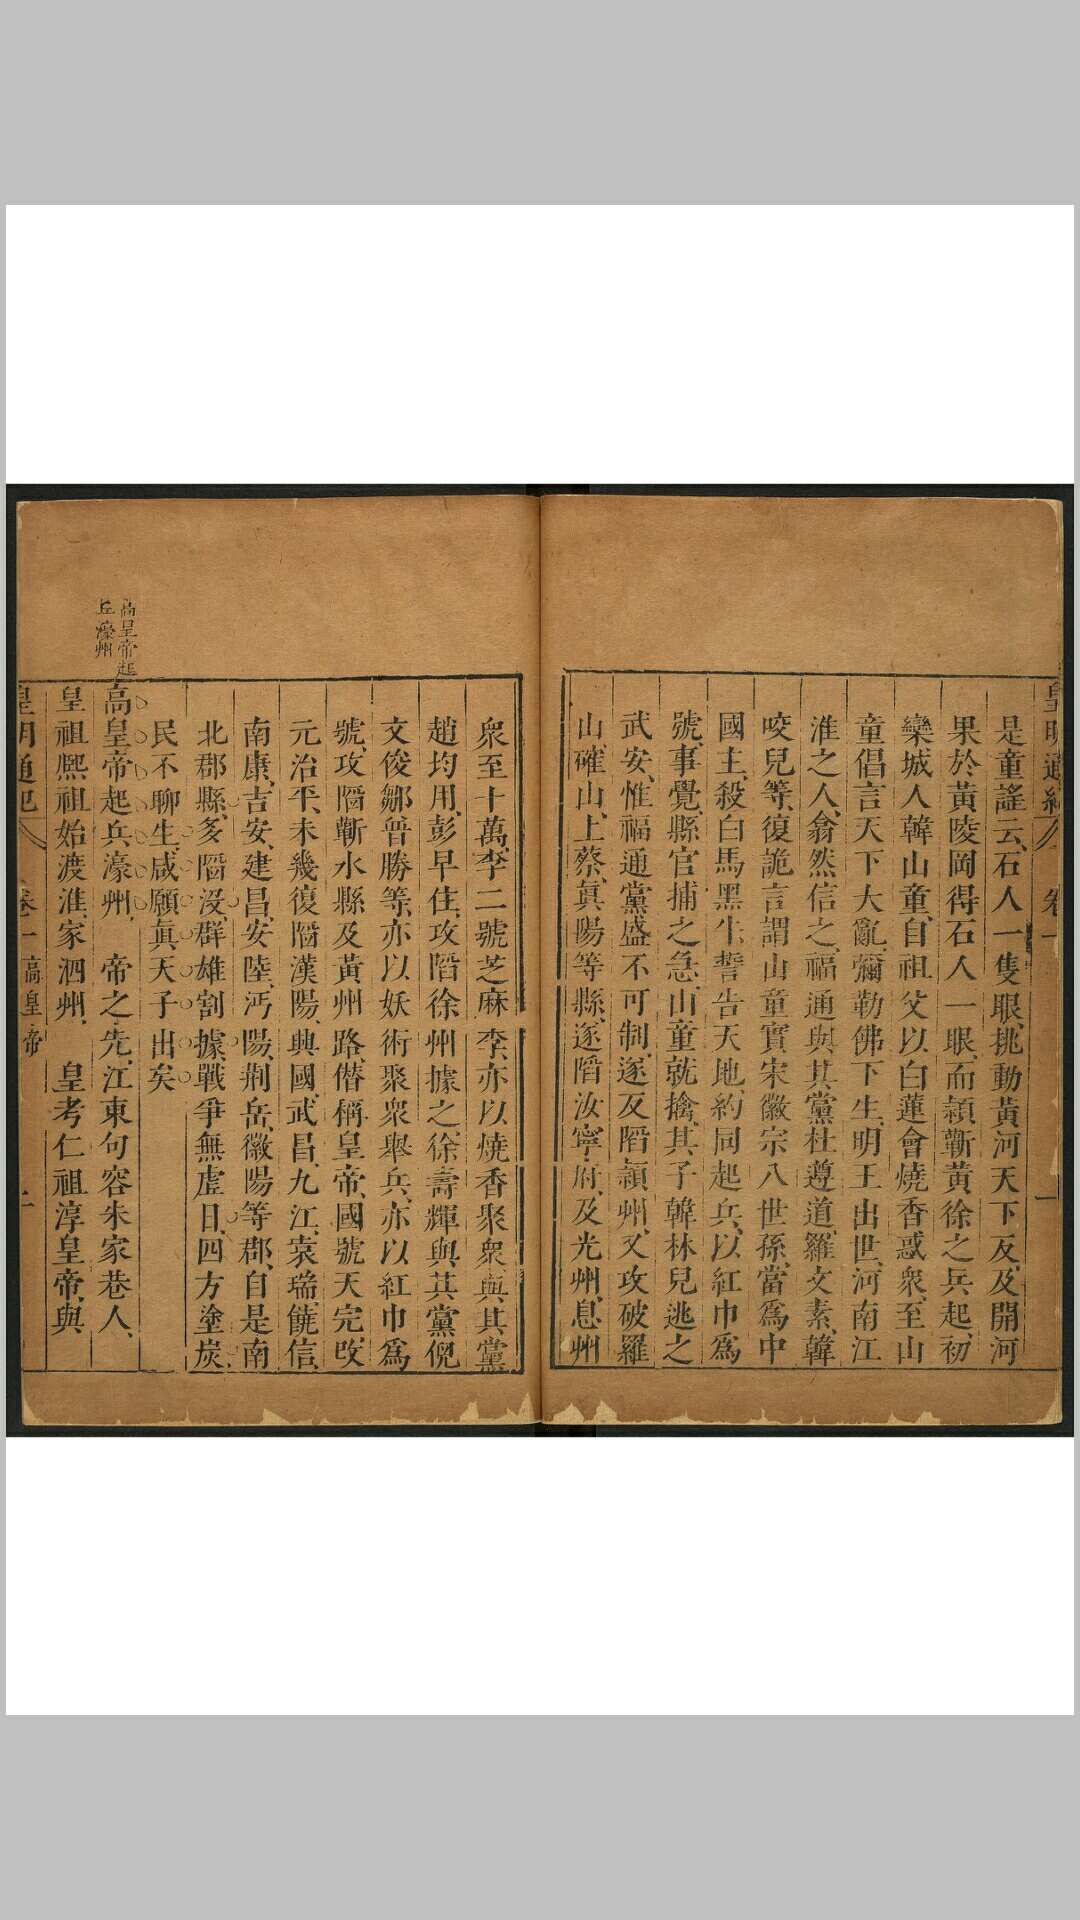 皇明通紀 卷一 一
是童謠云、石人一隻眼、挑動黃河天下反、及開河
果於黃陵岡得石人一眼、而潁蘄黃徐之兵起、初
欒城人韓山童、自祖父以白蓮會燒香惑衆、至山
童倡言天下大亂、彌勒佛下生、明王出世、河南江
淮之人、翕然信之、福通與其黨杜遵道、羅文素、韓
咬兒等、復詭言謂山童實宋徽宗八世孫、當爲中
國主、殺白馬黑牛、誓告天地、約同起兵、以紅巾爲
號、事覺、縣官捕之急、山童就擒、其子韓林兒逃之
武安、惟福通黨盛不可制、遂反陷潁州、又攻破羅
山、確山、上蔡、眞陽等縣、遂陷汝寧府、及光州、息州
衆至十萬、李二號芝麻李、亦以燒香聚衆、與其黨
趙均用、彭早住、攻陷徐州據之、徐壽輝與其黨倪
文俊鄒普勝等、亦以妖術聚衆舉兵、亦以紅巾爲
號、攻陷蘄水縣及黃州路、僭稱皇帝、國號天完、改
元治平、未幾復陷漢陽、興國、武昌、九江、袁瑞、饒信、
南康、吉安、建昌、安陸、沔陽、荆岳、徽陽等郡、自是南
北郡縣、多陷沒、群雄割據、戰爭無虛日、四方塗炭、
民不聊生、咸願眞天子出矣
高皇帝起
兵濠州
高皇帝起兵濠州、 帝之先、江東句容朱家巷人、
皇祖熙祖始渡淮、家泗州、 皇考仁祖淳皇帝、與
皇明通紀 卷一 高皇帝 二